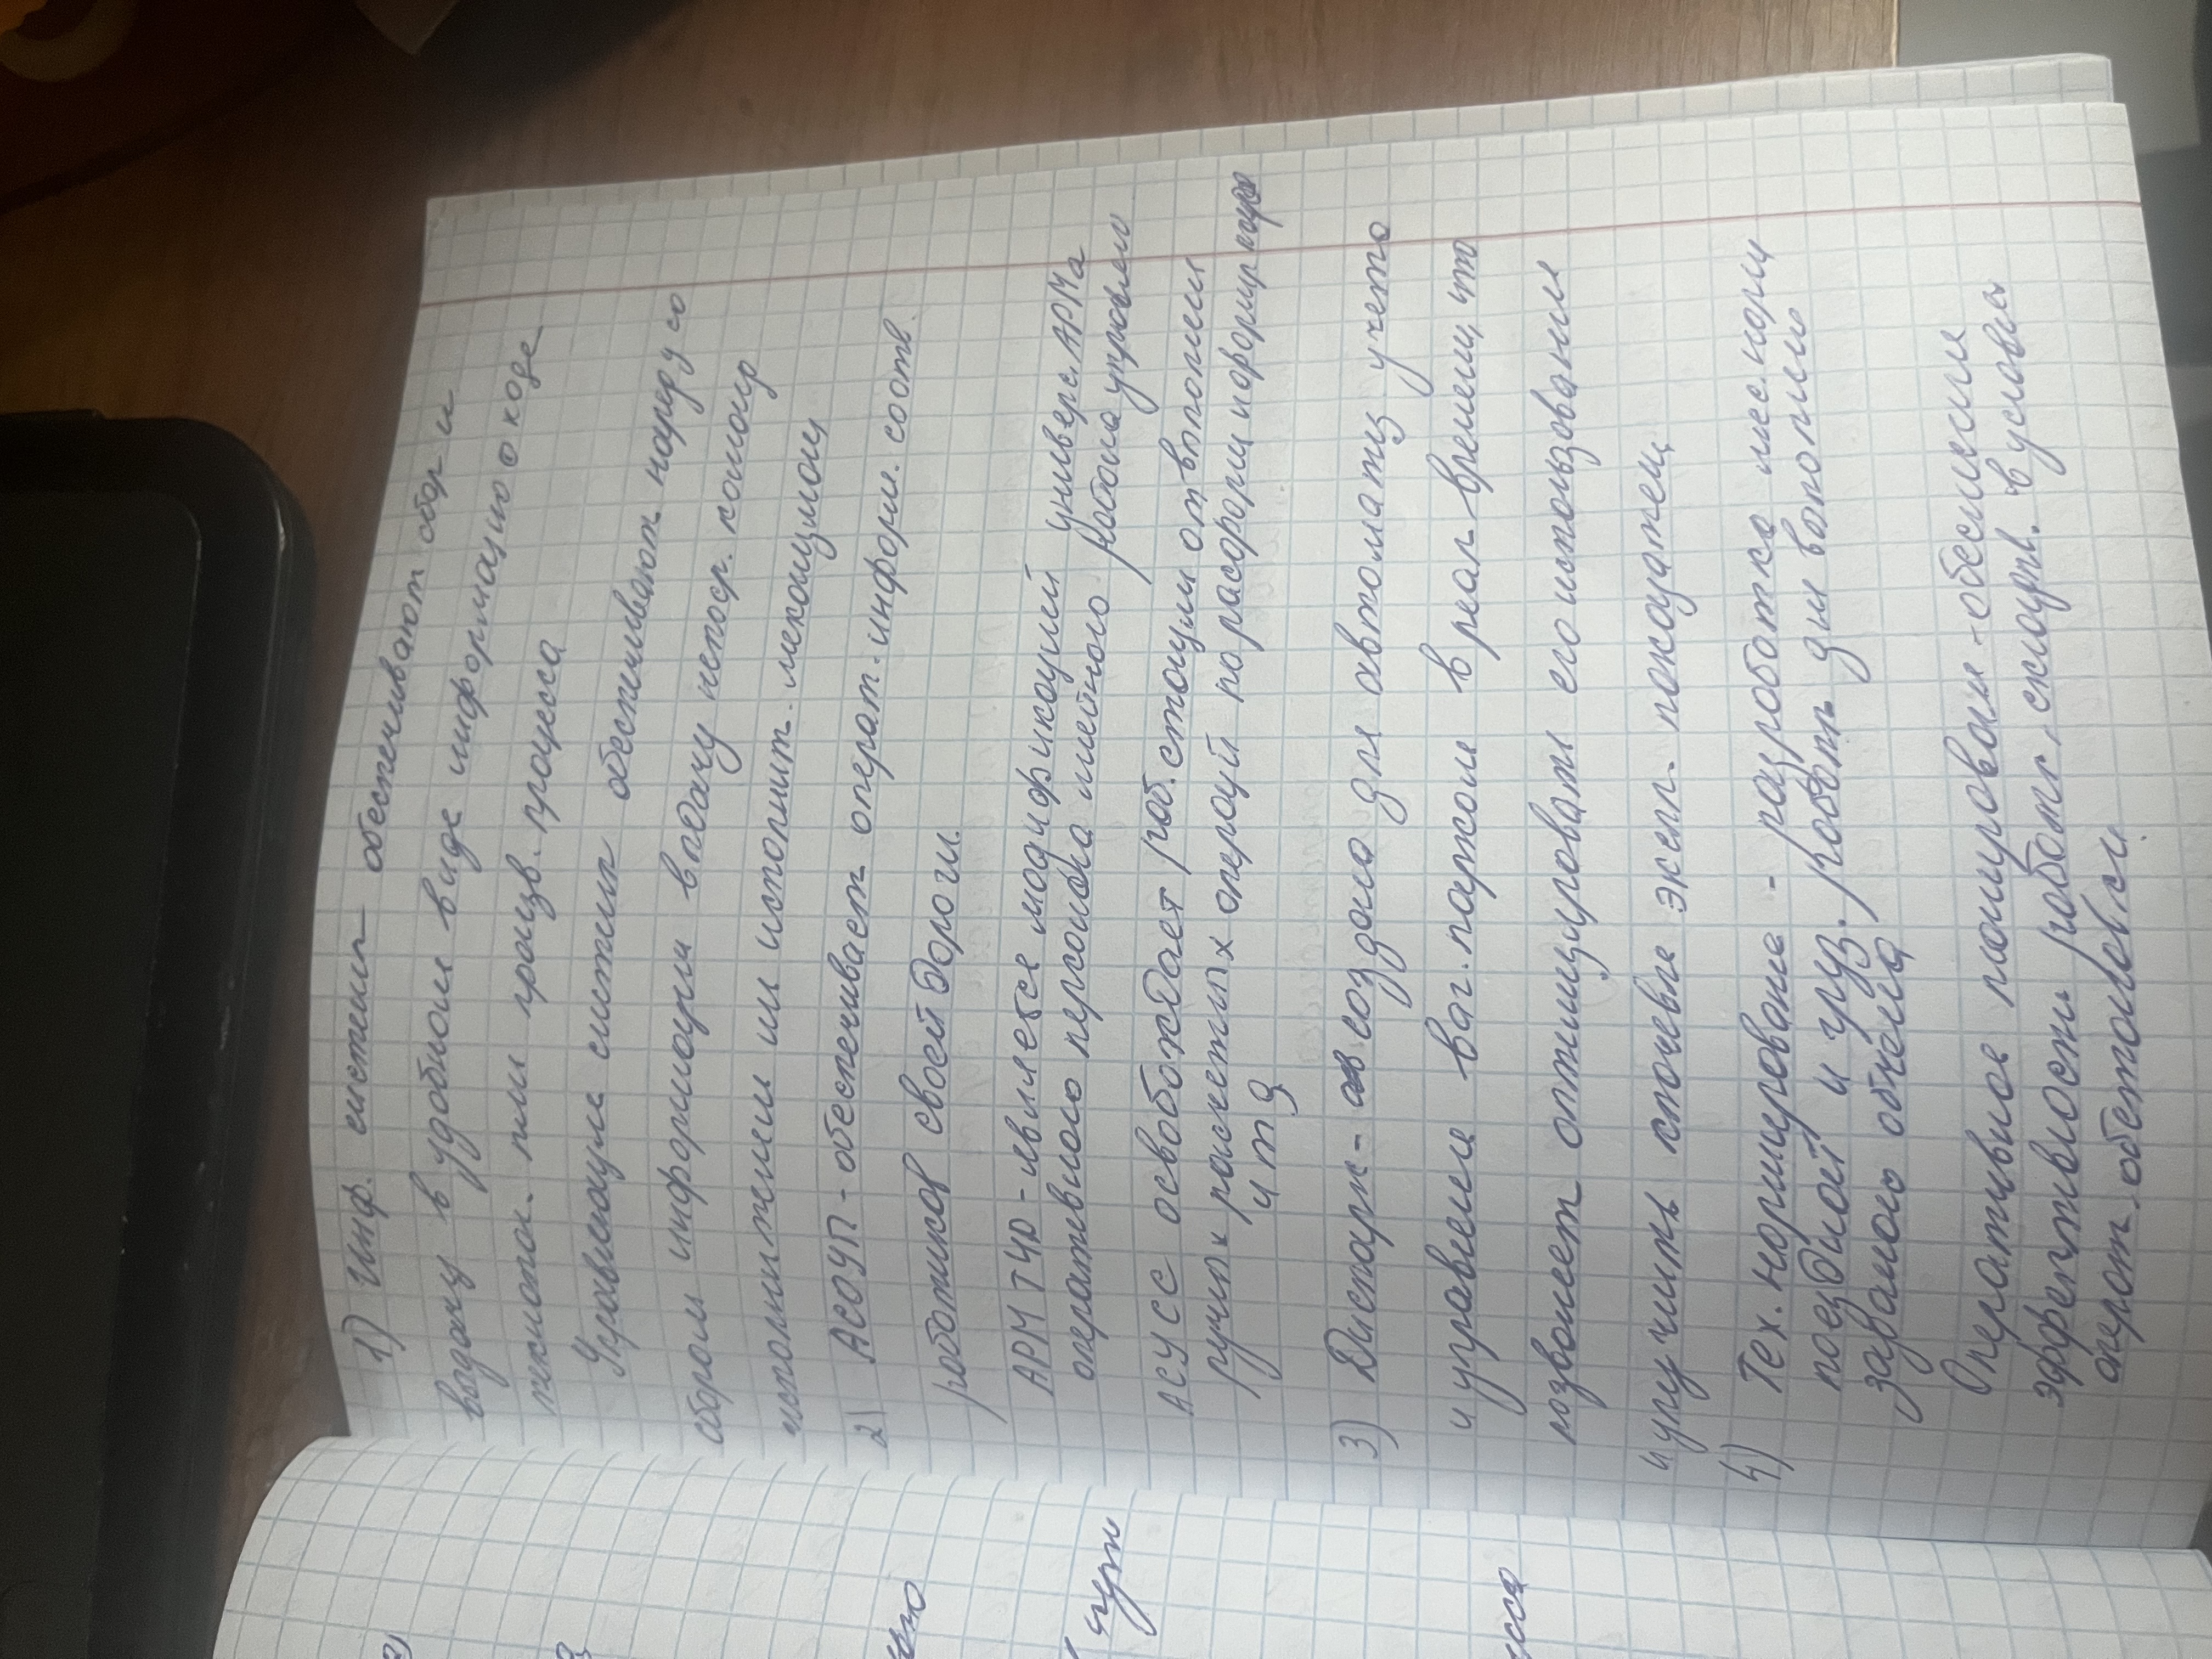 1) Инф. систем обеспечивают сбор и
выдачу в удобном виде информацию о ходе
технолог. или произв. процесса
Управляющие систем обеспечивают наряду со
сбором информации выдачу непоср. команд
исполнителям или исполнит. механизмам
2) АСОУП - обеспечивает операт. информ. соотв.
работников своей дороги.
АРМ ТЧD - является модификацией универс. АРМа
оперативного персонала линейного района управлен
АСУСС освобождает раб. станции от выполнен
ручных расчетных операций по расформ и формир
и т д
3) Диспарк - создана для автоматиз учета
и управлен ваг. парком в реал времени, что
позволяет оптимизировать его использование
и улучшить ключевые экспл. показатели
4) Тех. нормирование - разработка мес. норм
поездной и груз. работы для выполнен
заданного объема
Оперативное планирован - обеспечение
эффективности работы в условиях
операт. обстановки.
чук